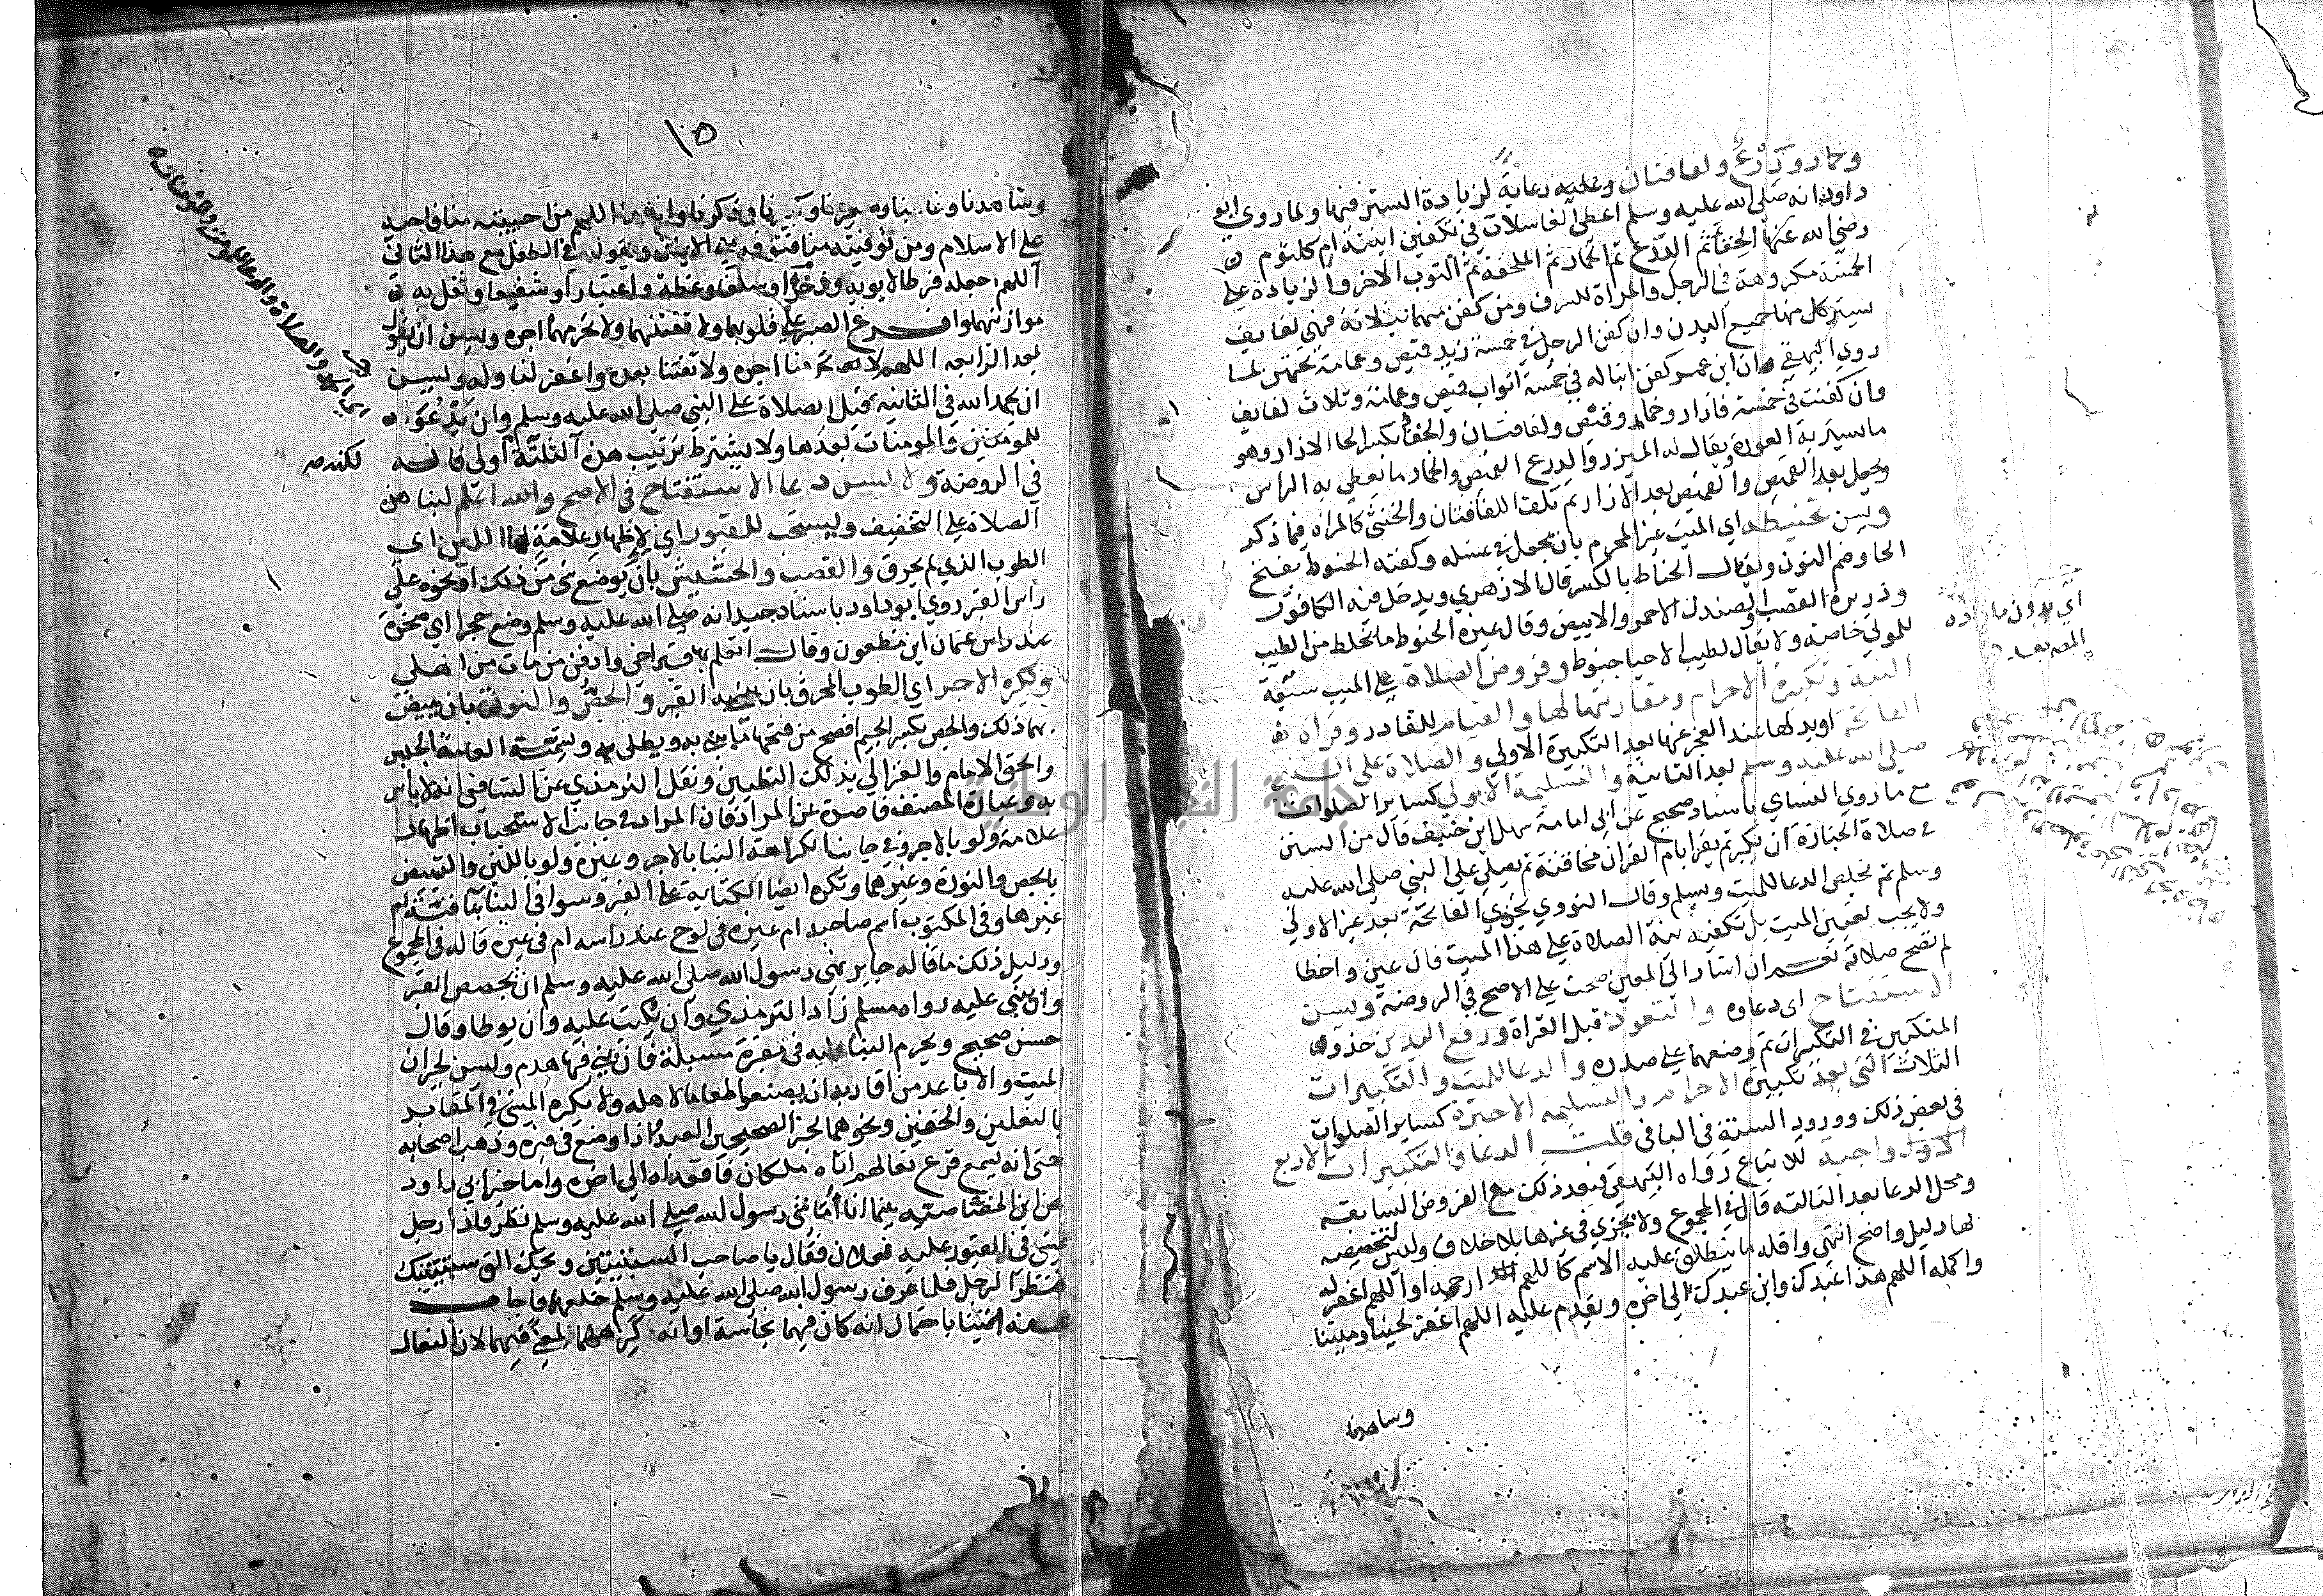 وخمار ودرع ولفافتان وعليه رعاية لزيادة الستر فيها ولما روى ابو
داود انه صلى الله عليه وسلم اعطى الغاسلات في تكفين ابنته ام كلثوم
رضي الله عنها الحقا ثم الدرع ثم الخمار ثم الملحفة ثم الثوب الاخر والزيادة على
الخمسة مكروهة في الرجل والمراة للسرف ومن كفن منهما بثلاثة فهي لفايف
يستر كل منها جميع البدن وان كفن الرجل في خمسة زيد قميص وعمامة تحتهن لما
روى البيهقي ان ابن عمر كفن ابنا له في خمسة اثواب قميص وعمامة وثلاث لفايف
وان كفنت في خمسة فازار وخمار وقميص ولفافتان والحقا بكسر الحا الازار وهو
ما يستر به العورة ويقال له الميزر والدرع القميص والخمار ما يغطى به الراس
ويجعل بعد القميص والقميص بعد الازار ثم تلف اللفافتان والخنثى كالمراة فيما ذكر
ويسن تحنيطه اي الميت غير المحرم بان يجعل في غسله وكفنه الحنوط بفتح
الحا وضم النون ويقال الحناط بالكسر قال الازهري ويدخل فيه الكافور
وذريرة القصب والصندل الاحمر والابيض وقال غيره الحنوط ما يخلط من الطيب
للموتى خاصة ولا يقال لطيب الاحيا حنوط وفروض الصلاة على الميت ستة
النية وتكبيرة الاحرام ومقارنتها لها والقيام للقادر وقراة
الفاتحة او بدلها عند العجز عنها بعد التكبيرة الاولى والصلاة على النبي
صلى الله عليه وسلم بعد الثانية والتسليمة الاولى كساير الصلوات
مع ما روى النساي باسناد صحيح عن ابي امامة سهل ابن حنيف قال من السنن
في صلاة الجنازة ان يكبر ثم يقرا بام القران مخافتة ثم يصلي على النبي صلى الله عليه
وسلم ثم يخلص الدعا للميت ويسلم وقال النووي تجزي الفاتحة بعد غير الاولى
ولا يجب تعيين الميت بل تكفيه نية الصلاة على هذا الميت فان عين واخطا
لم تصح صلاته نعم ان اشار الى المعين صحت على الاصح في الروضة ويسن
الاستفتاح اي دعاوه والتعوذ قبل القراة ورفع اليدين حذو
المنكبين في التكبيرات ثم وضعهما على صدره والدعا للميت والتكبيرات
الثلاث التي بعد تكبيرة الاحرام والتسليمة الاخيرة كساير الصلوات
في بعض ذلك وورود السنة في الباقي قلت الدعا والتكبيرات الاربع
الاول واجبة للاتباع رواه البيهقي فيعد ذلك مع الفروض السابقة
ومحل الدعا بعد الثالثة قال في المجموع ولا يجزي في غيرها بلا خلاف وليس لتخصيصه
لها دليل واضح انتهى واقله ما ينطلق عليه الاسم كاللهم ارحمه او اللهم اغفر له
واكمله اللهم هذا عبدك وابن عبدك الى اخره ويقدم عليه اللهم اغفر لحينا وميتنا
وشاهدنا
اي بدون ما
١٥
وشاهدنا وغايبنا وصغيرنا وكبيرنا وذكرنا وانثانا اللهم من احييته منا فاحيه
على الاسلام ومن توفيته منا فتوفه على الايمان ويقول في الطفل مع هذا الثاني
اللهم اجعله فرطا لابويه وذخرا وسلفا وعظة واعتبارا وشفيعا وثقل به
موازينهما وافرغ الصبر على قلوبهما ولا تفتنهما ولا تحرمهما اجره ويسن ان يقول
بعد الرابعة اللهم لا تحرمنا اجره ولا تفتنا بعده واغفر لنا وله ويسن
ان يحمد الله في الثانية قبل الصلاة على النبي صلى الله عليه وسلم وان يدعو
للمومنين والمومنات بعدها ولا يشترط ترتيب هذه الثلثة اولى قاله
في الروضة ولا يسن دعا الاستفتاح في الاصح والله اعلم لبنا هذه
الصلاة على التخفيف ويستحب للمقبور اي لاظهار علامة اللبن اي
الطوب الذي لم يحرق والقصب والحشيش بان يوضع شي من ذلك او نحوه على
راس القبر روى ابو داود باسناد جيد انه صلى الله عليه وسلم وضع حجرا اي صخرة
عند راس عثمان ابن مظعون وقال اتعلم بها قبر اخي وادفن من مات من اهلي
ويكره الاجر اي الطوب المحرق بان القبر والجص والنورة بان يبيض
بهما ذلك والجص بكسر الجيم افصح من فتحها ما يبنى به ويطلى وتسميه العامة الجبس
والحق الامام والغزالي بذلك التطيين ونقل الترمذي عن الشافعي انه لا باس
به وعبارة المصنف قاصرة عن المراد فان المراد في جانب الاستحباب اظهار
علامة ولو بالاجر وفي جانب الكراهة البنا بالاجر وغيره ولو باللبن والتبيض
بالجص والنورة وغيرهما وتكره ايضا الكتابة على القبر وسوا في البنا بنا قبة ام
غيرها وفي المكتوب اسم صاحبه ام غيره في لوح عند راسه ام في غيره قاله في المجموع
ودليل ذلك ما قاله جابر نهى رسول الله صلى الله عليه وسلم ان يجصص القبر
وان يبنى عليه رواه مسلم زاد الترمذي وان يكتب عليه وان يوطا وقال
حسن صحيح ويحرم البنا عليه في مقبرة مسبلة فان بني فيها هدم ويسن لجيران
الميت والاباعد من اقاربه ان يصنعوا طعاما لاهله ولا يكره المشي في المقابر
بالنعلين والخفين ونحوهما لخبر الصحيحين العبد اذا وضع في قبره وذهب اصحابه
حتى انه يسمع قرع نعالهم اتاه ملكان فاقعداه الى اخره واما خبر ابي داود
عن ابن الخصاصية بينما انا اماشي رسول الله صلى الله عليه وسلم نظر فاذا رجل
يمشي في القبور عليه نعلان فقال يا صاحب السبتيتين ويحك الق سبتيتيك
فنظر الرجل فلما عرف رسول الله صلى الله عليه وسلم خلعهما فاجاب
عنه ايمتنا باحتمال انه كان فيهما نجاسة او انه كرههما لمعنى فيهما لان النعال
لكنه